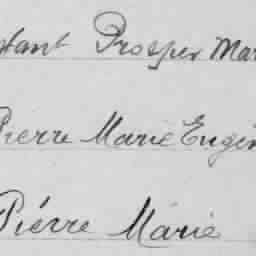 stant Prosper Mar
Pierre Marie Eugèn
Piérre Marie